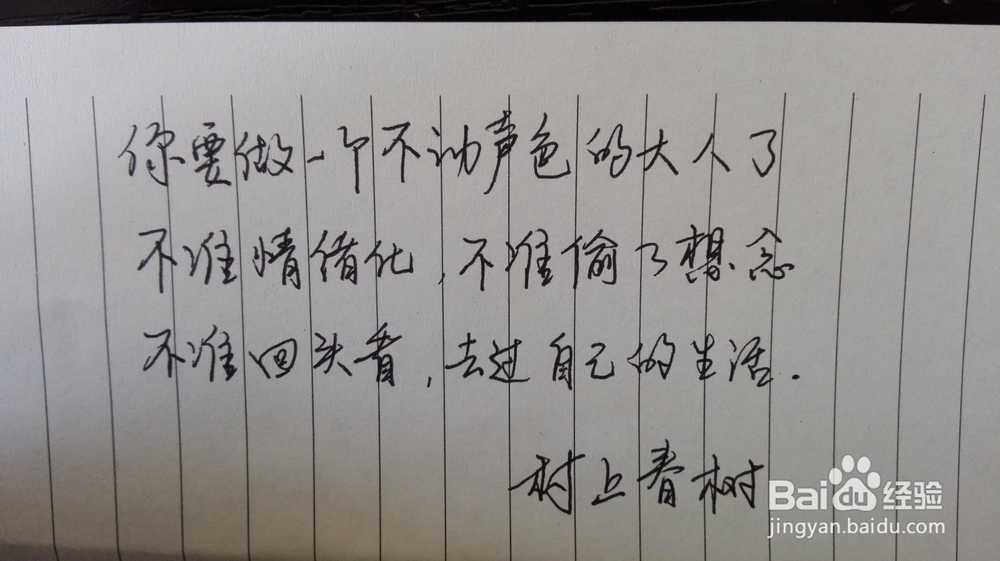 你要做一个不动声色的大人了
不准情绪化,不准偷了想念
不准回头看,去过自己的生活.
村上春树
Baidu经验
jingyan.baidu.com